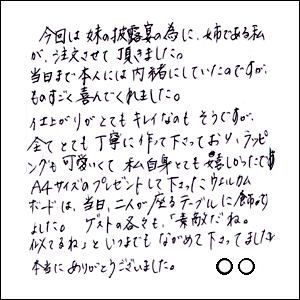 今回は妹の披露宴の為に、姉である私
が、注文させて頂きました。
当日まで本人には内緒にしていたのですが、
ものすごく喜んでくれました。
仕上がりがとてもキレイなのもそうですが、
全てとても丁寧に作って下さっており、ラッピ
ングも可愛いくて私自身とても嬉しかったです
A4サイズのプレゼントして下さったウェルカム
ボードは、当日、二人が座るテーブルに飾って
ました。ゲストの各々も、「素敵だね。
似てるね」といつまでもながめて下さってました
本当にありがとうございました。 〇〇